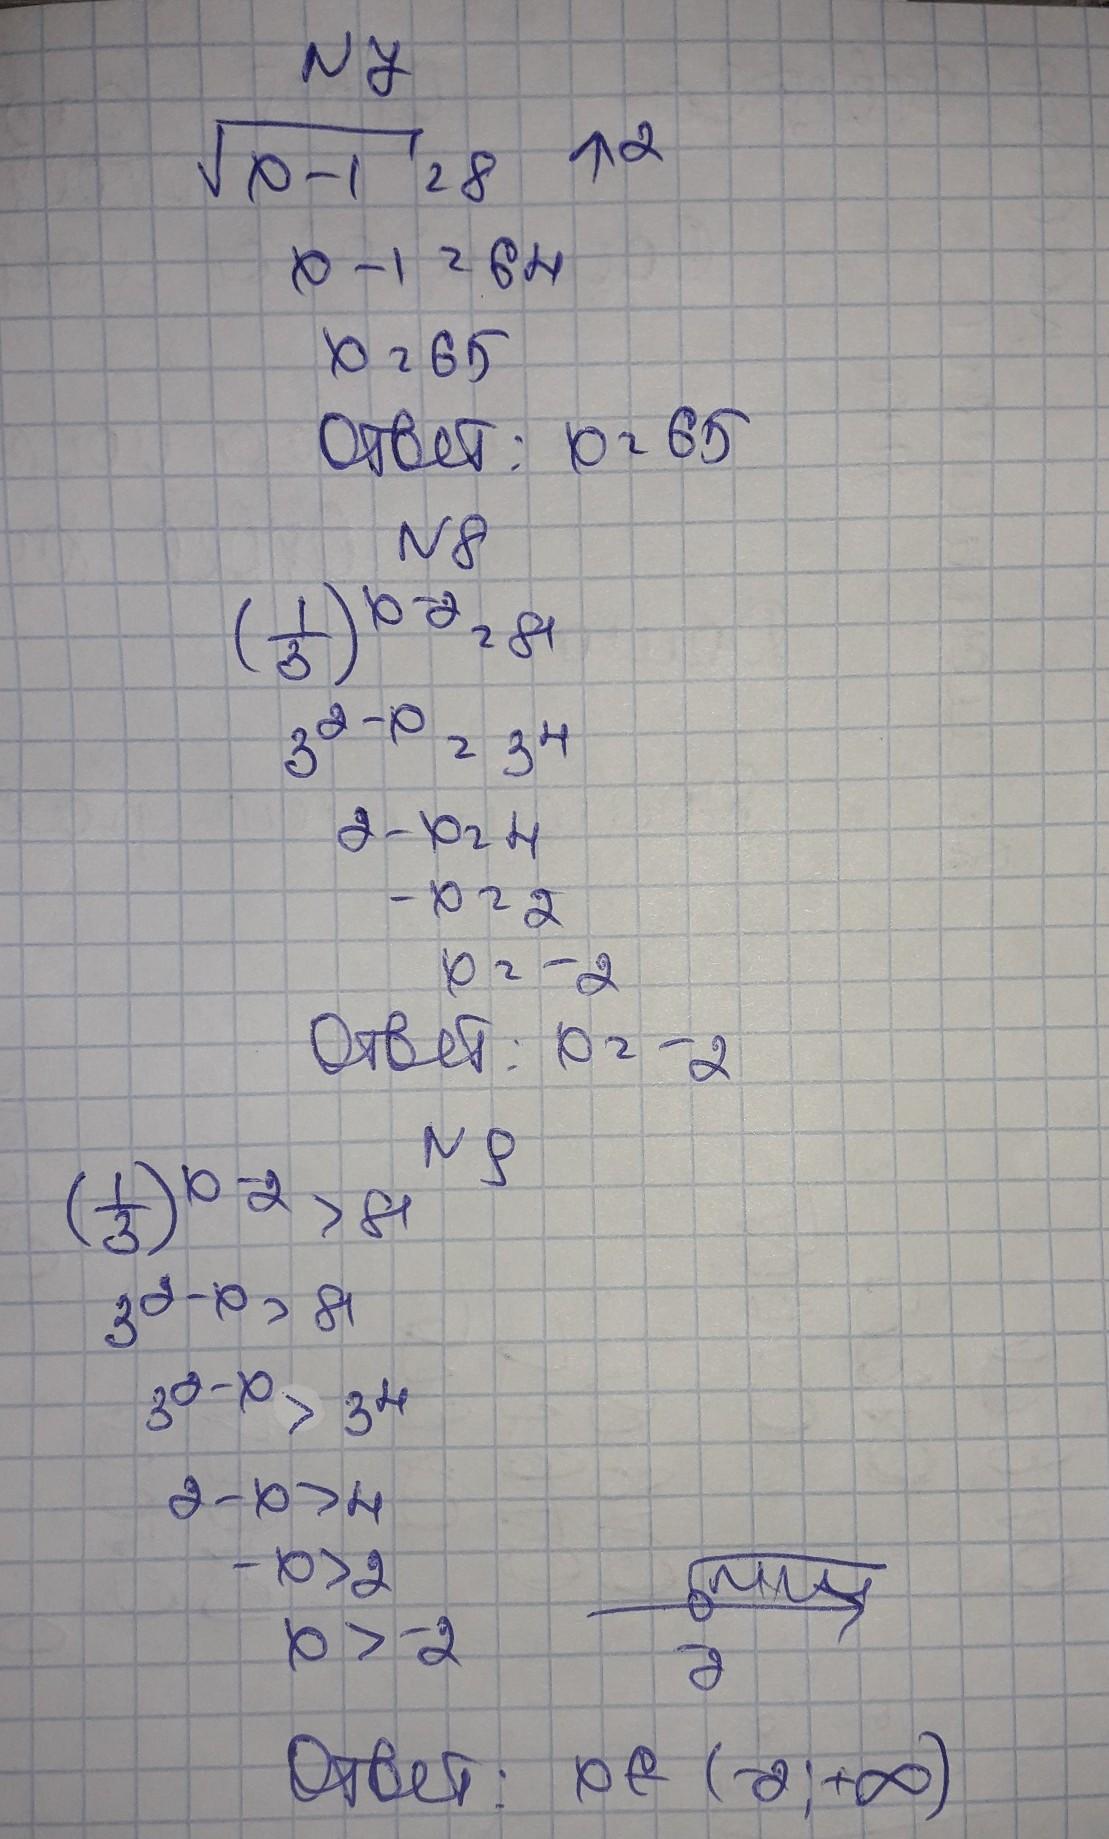 N7
√(x-1) = 8 ↑2
x - 1 = 64
x = 65
Ответ: x = 65
N8
(1/3)^(x-2) = 81
3^(2-x) = 3^4
2 - x = 4
-x = 2
x = -2
Ответ: x = -2
N9
(1/3)^(x-2) > 81
3^(2-x) > 81
3^(2-x) > 3^4
2 - x > 4
-x > 2
x > -2
-2
Ответ: x ∈ (-2; +∞)